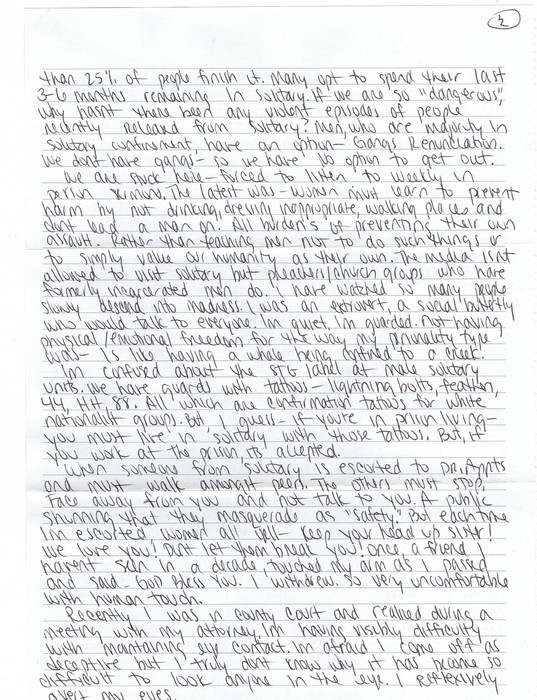 2
than 25% of people finish it. Many opt to spend their last
3-6 months remaining in solitary. If we are so "dangerous",
why hasnt there been any violent episodes of people
recently released from solitary? Men, who are majority in
solitary confinement, have an option - Gangs Renunciation.
We dont have gangs - so we have no option to get out.
We are stuck here - forced to listen to weekly in
person sermons. The latest was - women must learn to prevent
harm by not drinking, dressing inappropriate, walking places and
dont lead a man on. All burden's of preventing their own
assault. Rather than teaching men not to do such things or
to simply value our humanity as their own. The media isnt
allowed to visit solitary but preachers/church groups who have
formerly incarcerated men do. I have watched so many people
slowly descend into madness. I was an extrovert, a social butterfly
who would talk to everyone. Im quiet, Im guarded. Not having
physical/emotional freedom for the way my personality type
was - Is like having a whole being confined to a
Im confused about the STG label at male solitary
units. We have guards with tattoos - lightning bolts, feather,
44, HH, 88. All which are confirmation tattoos for white
nationalist groups. But, I guess - if you're in prison living -
you must live in solitary with those tattoos. But, if
you work at the prison, its accepted.
When someone from solitary is escorted to
and must walk amongst peers. The others must stop,
face away from you and not talk to you. A public
shunning that they masquerade as "safety." But each time
Im escorted, women all yell - keep your head up sister!
We love you! Dont let them break you! Once, a friend I
havent seen in a decade, touched my arm as I passed
and said - God Bless You. I withdrew. So very uncomfortable
with human touch.
Recently I was in county court and realized during a
meeting with my attorney. Im having visibly difficulty
with maintaining eye contact. Im afraid I come off as
deceptive but I truly dont know why it has become so
difficult to look anyone in the eye. I
avert my eyes.